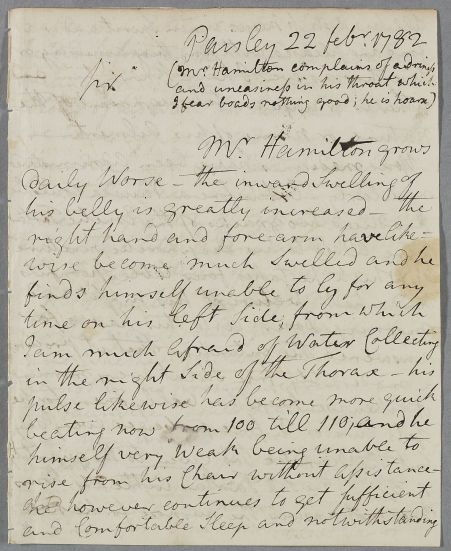 Paisley 22 febr. 1782
Sir
(Mr. Hamilton complains of a dryness
and uneasiness in his throat which
I fear boads nothing good; he is hoars)
Mr. Hamilton grows
daily Worse – the inward Swelling of
his belly is greatly increased – the
right hand and fore arm have like-
wise become much Swelled and he
finds himself unable to ly for any
time on his left Side; from which
I am much afraid of Water Collecting
in the right Side of the Thorax – his
pulse likewise has become more quick
beating now from 100 till 110, and he
himself very Weak being unable to
rise from his Chair without assistance-
he however continues to get sufficient
and Comfortable Sleep and notwithstanding